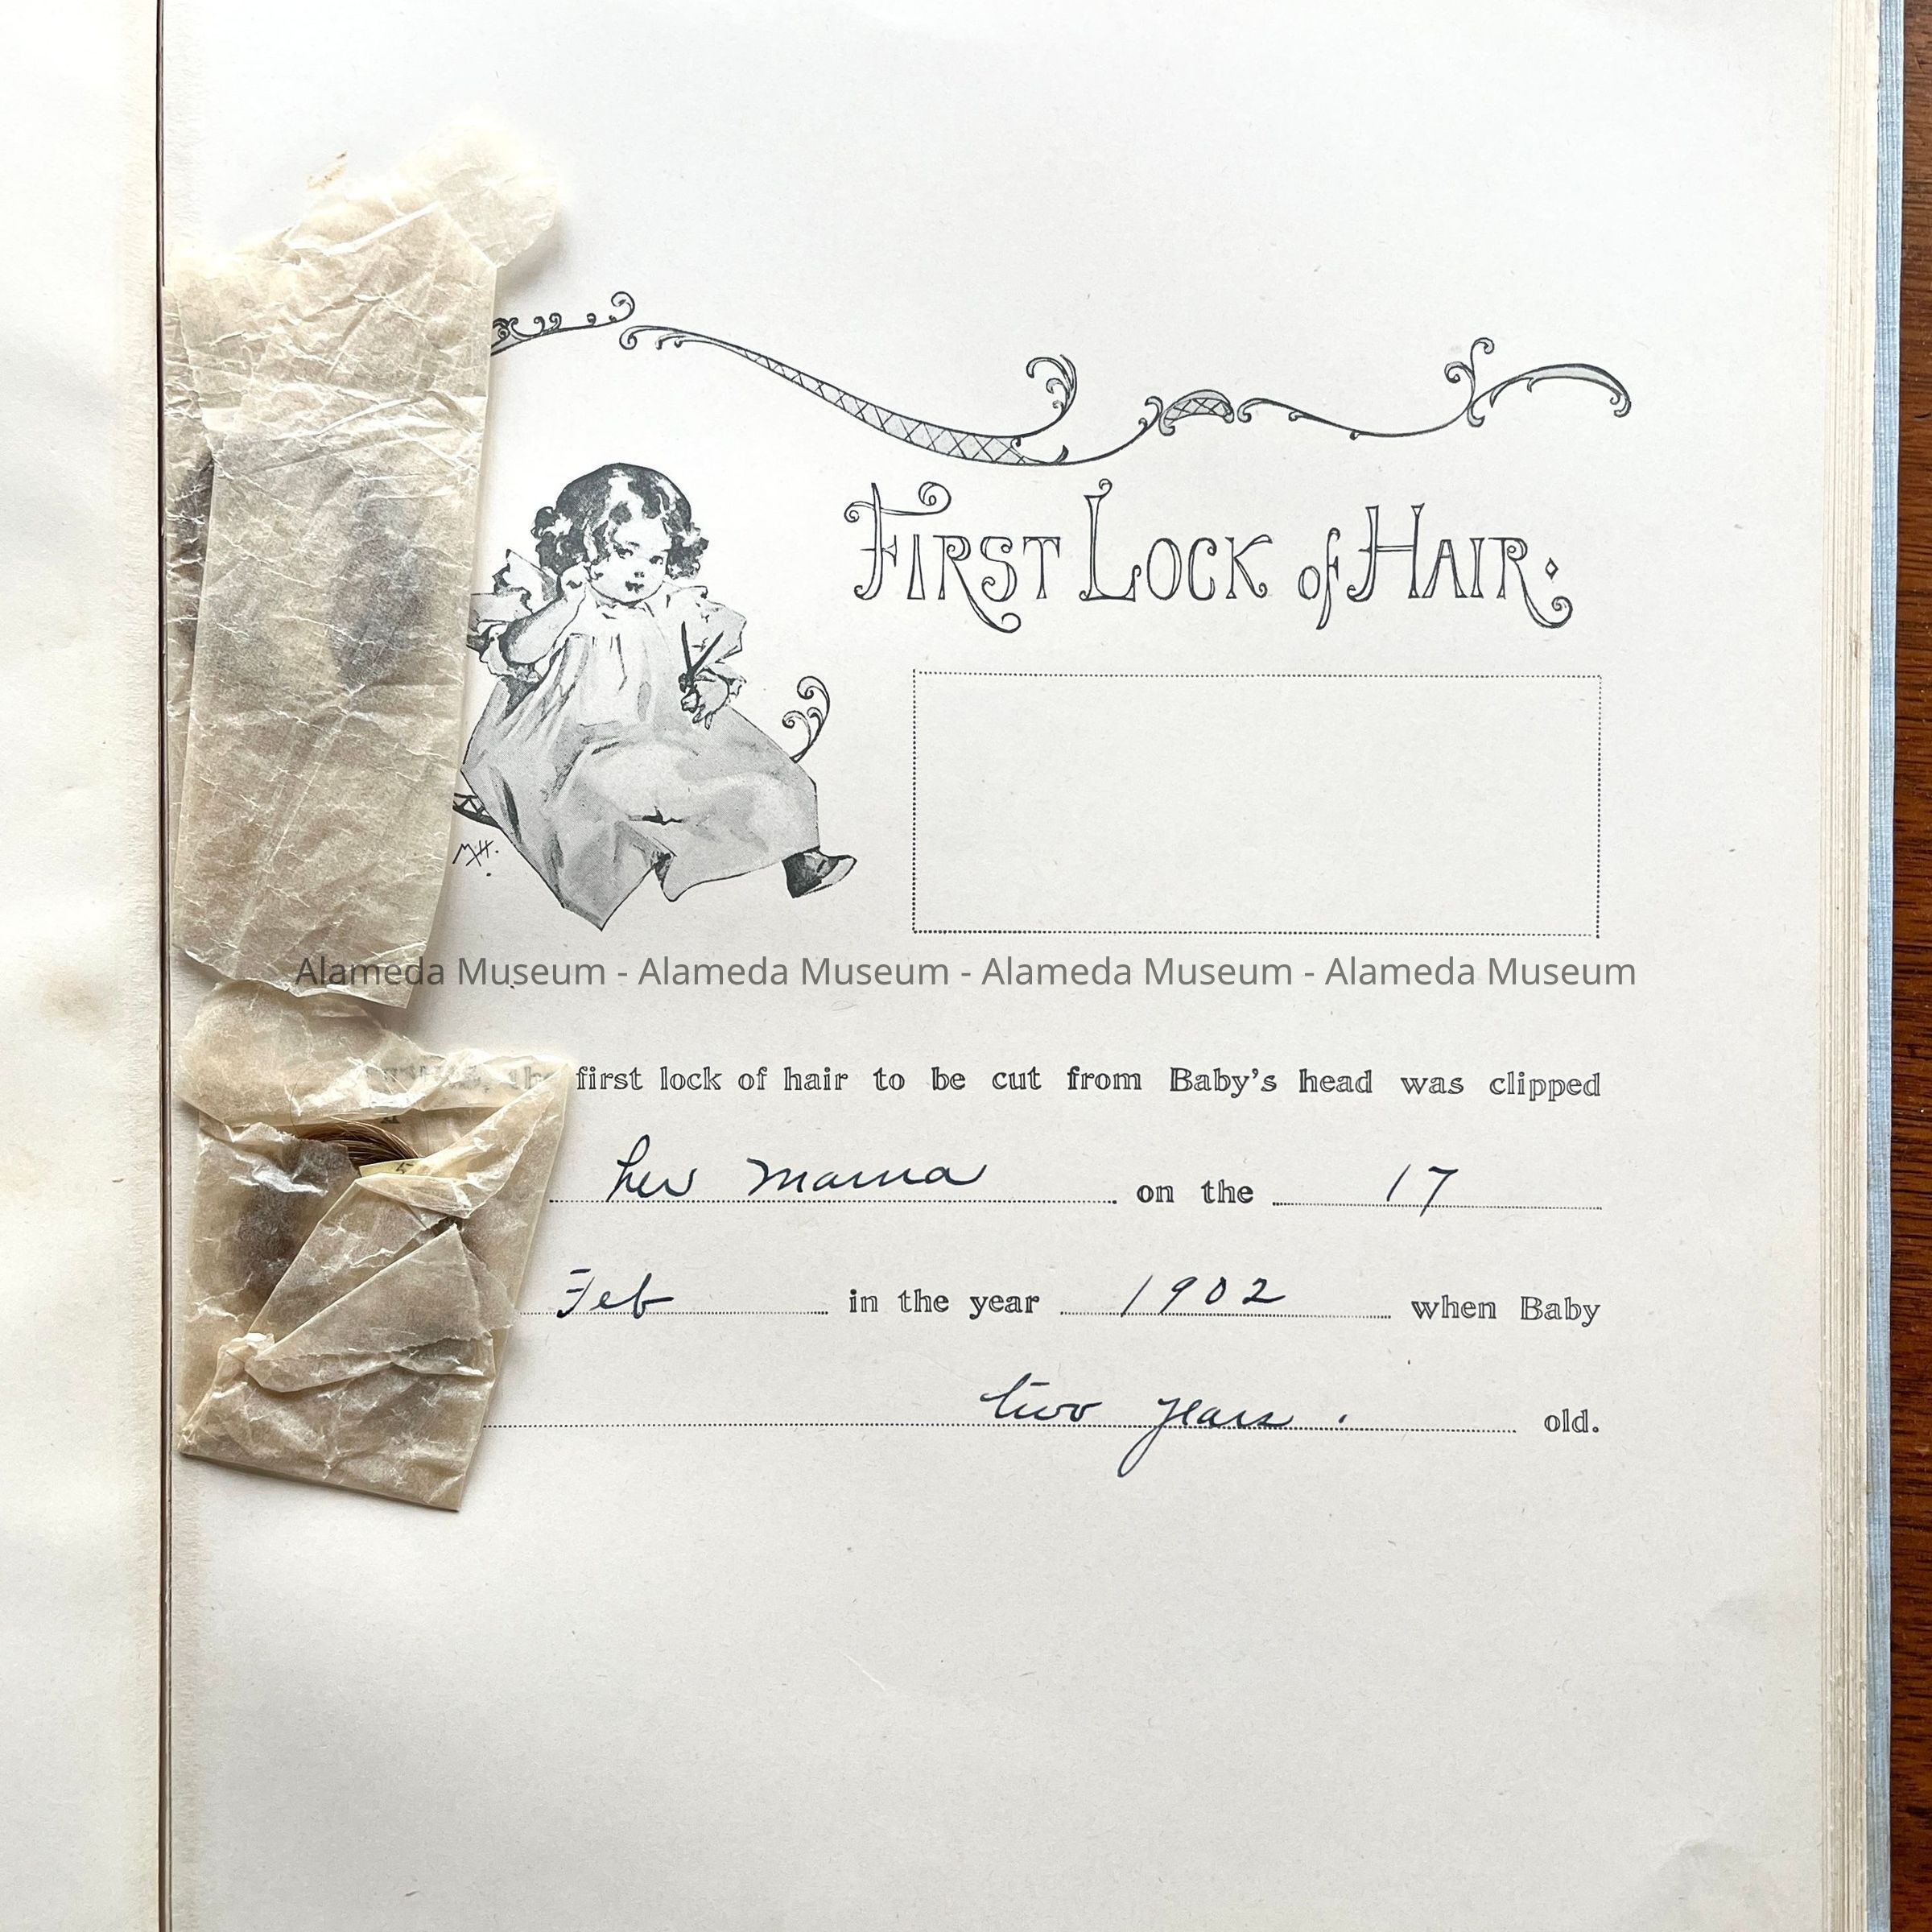 FIRST LOCK of HAIR:
MH.
Alameda Museum - Alameda Museum - Alameda Museum - Alameda Museum
the first lock of hair to be cut from Baby's head was clipped
her Mama on the 17
Feb in the year 1902 when Baby
two years. old.